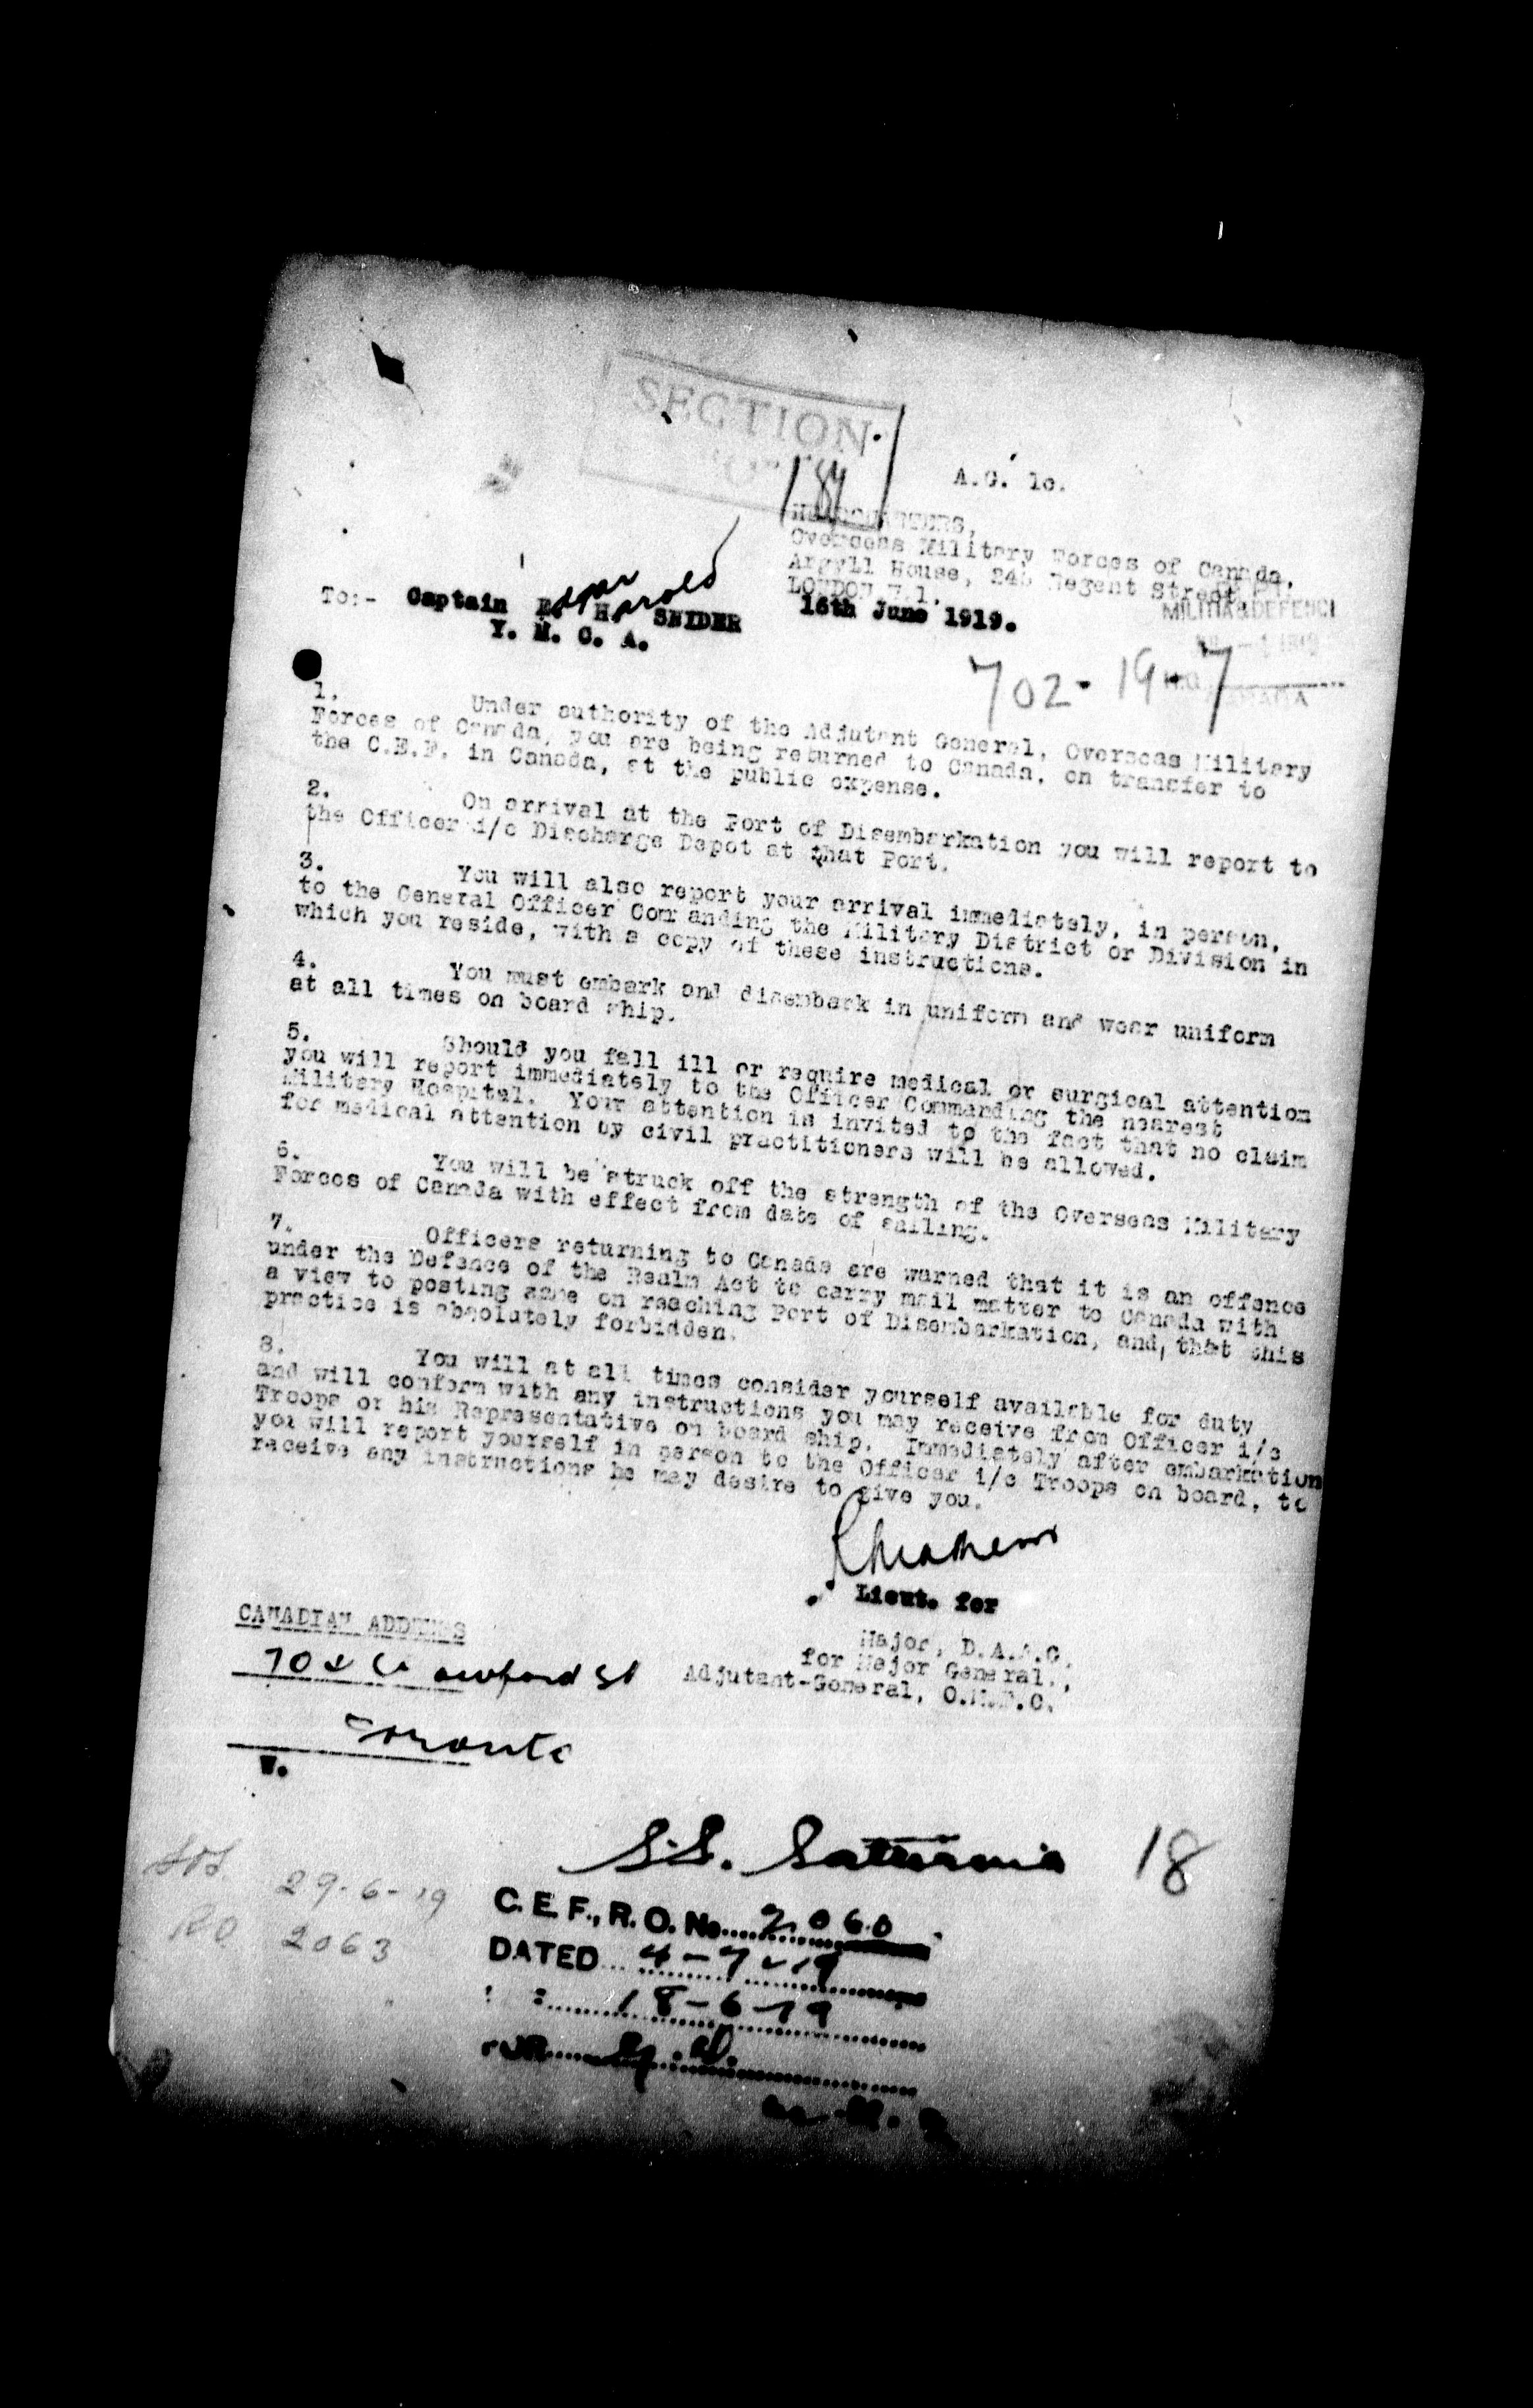 SECTION
"C"
184
A.G. 1c.
HEADQUARTERS,
Overseas Military Forces of Canada,
Argyll House, 246 Regent Street,
LONDON W.1.
16th June 1919.
MILITIA & DEFENCE
To:- Captain Edgar Harold SNIDER
Y. M. C. A.
702-19-7
1. Under authority of the Adjutant General, Overseas Military
Forces of Canada, you are being returned to Canada, on transfer to
the C.E.F. in Canada, at the public expense.
2. On arrival at the Port of Disembarkation you will report to
the Officer i/c Discharge Depot at that Port.
3. You will also report your arrival immediately, in person,
to the General Officer Commanding the Military District or Division in
which you reside, with a copy of these instructions.
4. You must embark and disembark in uniform and wear uniform
at all times on board ship.
5. Should you fall ill or require medical or surgical attention
you will report immediately to the Officer Commanding the nearest
Military Hospital. Your attention is invited to the fact that no claim
for medical attention by civil practitioners will be allowed.
6. You will be struck off the strength of the Overseas Military
Forces of Canada with effect from date of sailing.
7. Officers returning to Canada are warned that it is an offence
under the Defence of the Realm Act to carry mail matter to Canada with
a view to posting same on reaching Port of Disembarkation, and, that this
practice is absolutely forbidden.
8. You will at all times consider yourself available for duty
and will conform with any instructions you may receive from Officer i/c
Troops or his Representative on board ship. Immediately after embarkation
you will report yourself in person to the Officer i/c Troops on board, to
receive any instructions he may desire to give you.
Lieut. for
Major, D.A.A.G.
for Major General,,
Adjutant-General, O.M.F.C.
CANADIAN ADDRESS
Crawford St
Toronto
W.
S.S. Saturnia 18
SOS 29-6-19
RO 2063
C. E. F., R. O. No. 2060
DATED 4-7-19
18-6-19